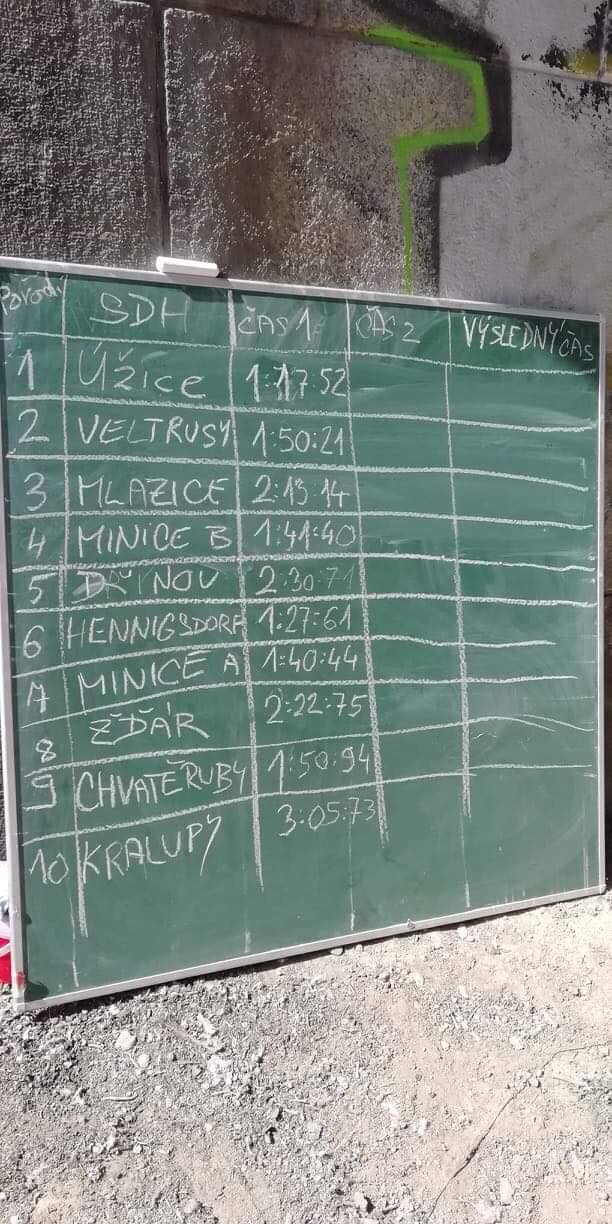 Pořadí SDH ČAS 1 ČAS 2 VÝSLEDNÝ ČAS
1 Úžice 1:17:52
2 VELTRUSY 1:50:21
3 MLAZICE 2:13:14
4 MINICE B 1:41:40
5 DŘÍNOV 2:30:71
6 HENNIGSDORF 1:27:61
7 MINICE A 1:40:44
8 ŽĎÁR 2:22:75
9 CHVATĚRUBY 1:50:94
10 KRALUPY 3:05:73